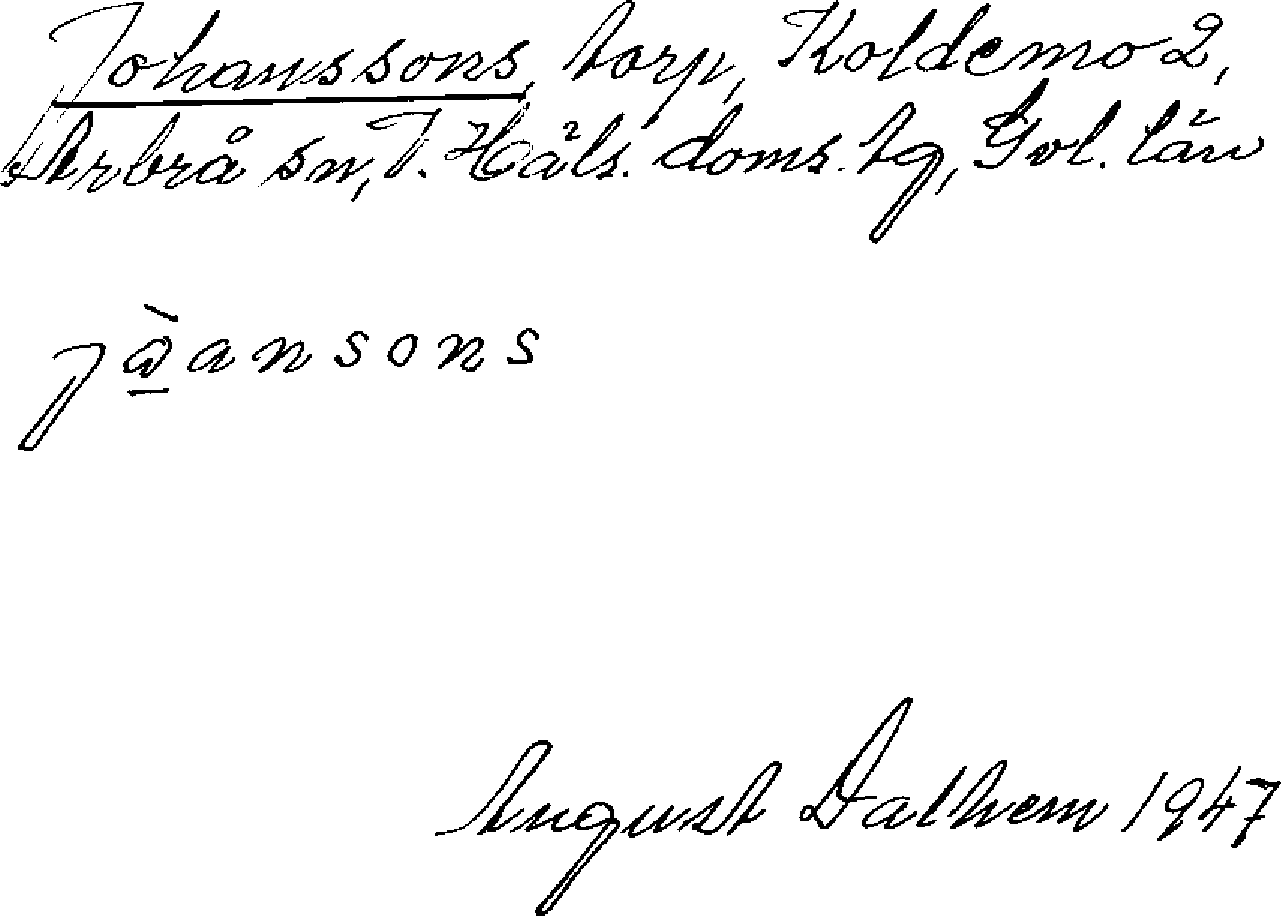 Johanssons, torp, Koldemo 2,
Arbrå sn, V. Häls. doms. tg, Gvl. län
jò̱ansons
August Dalhem 1947